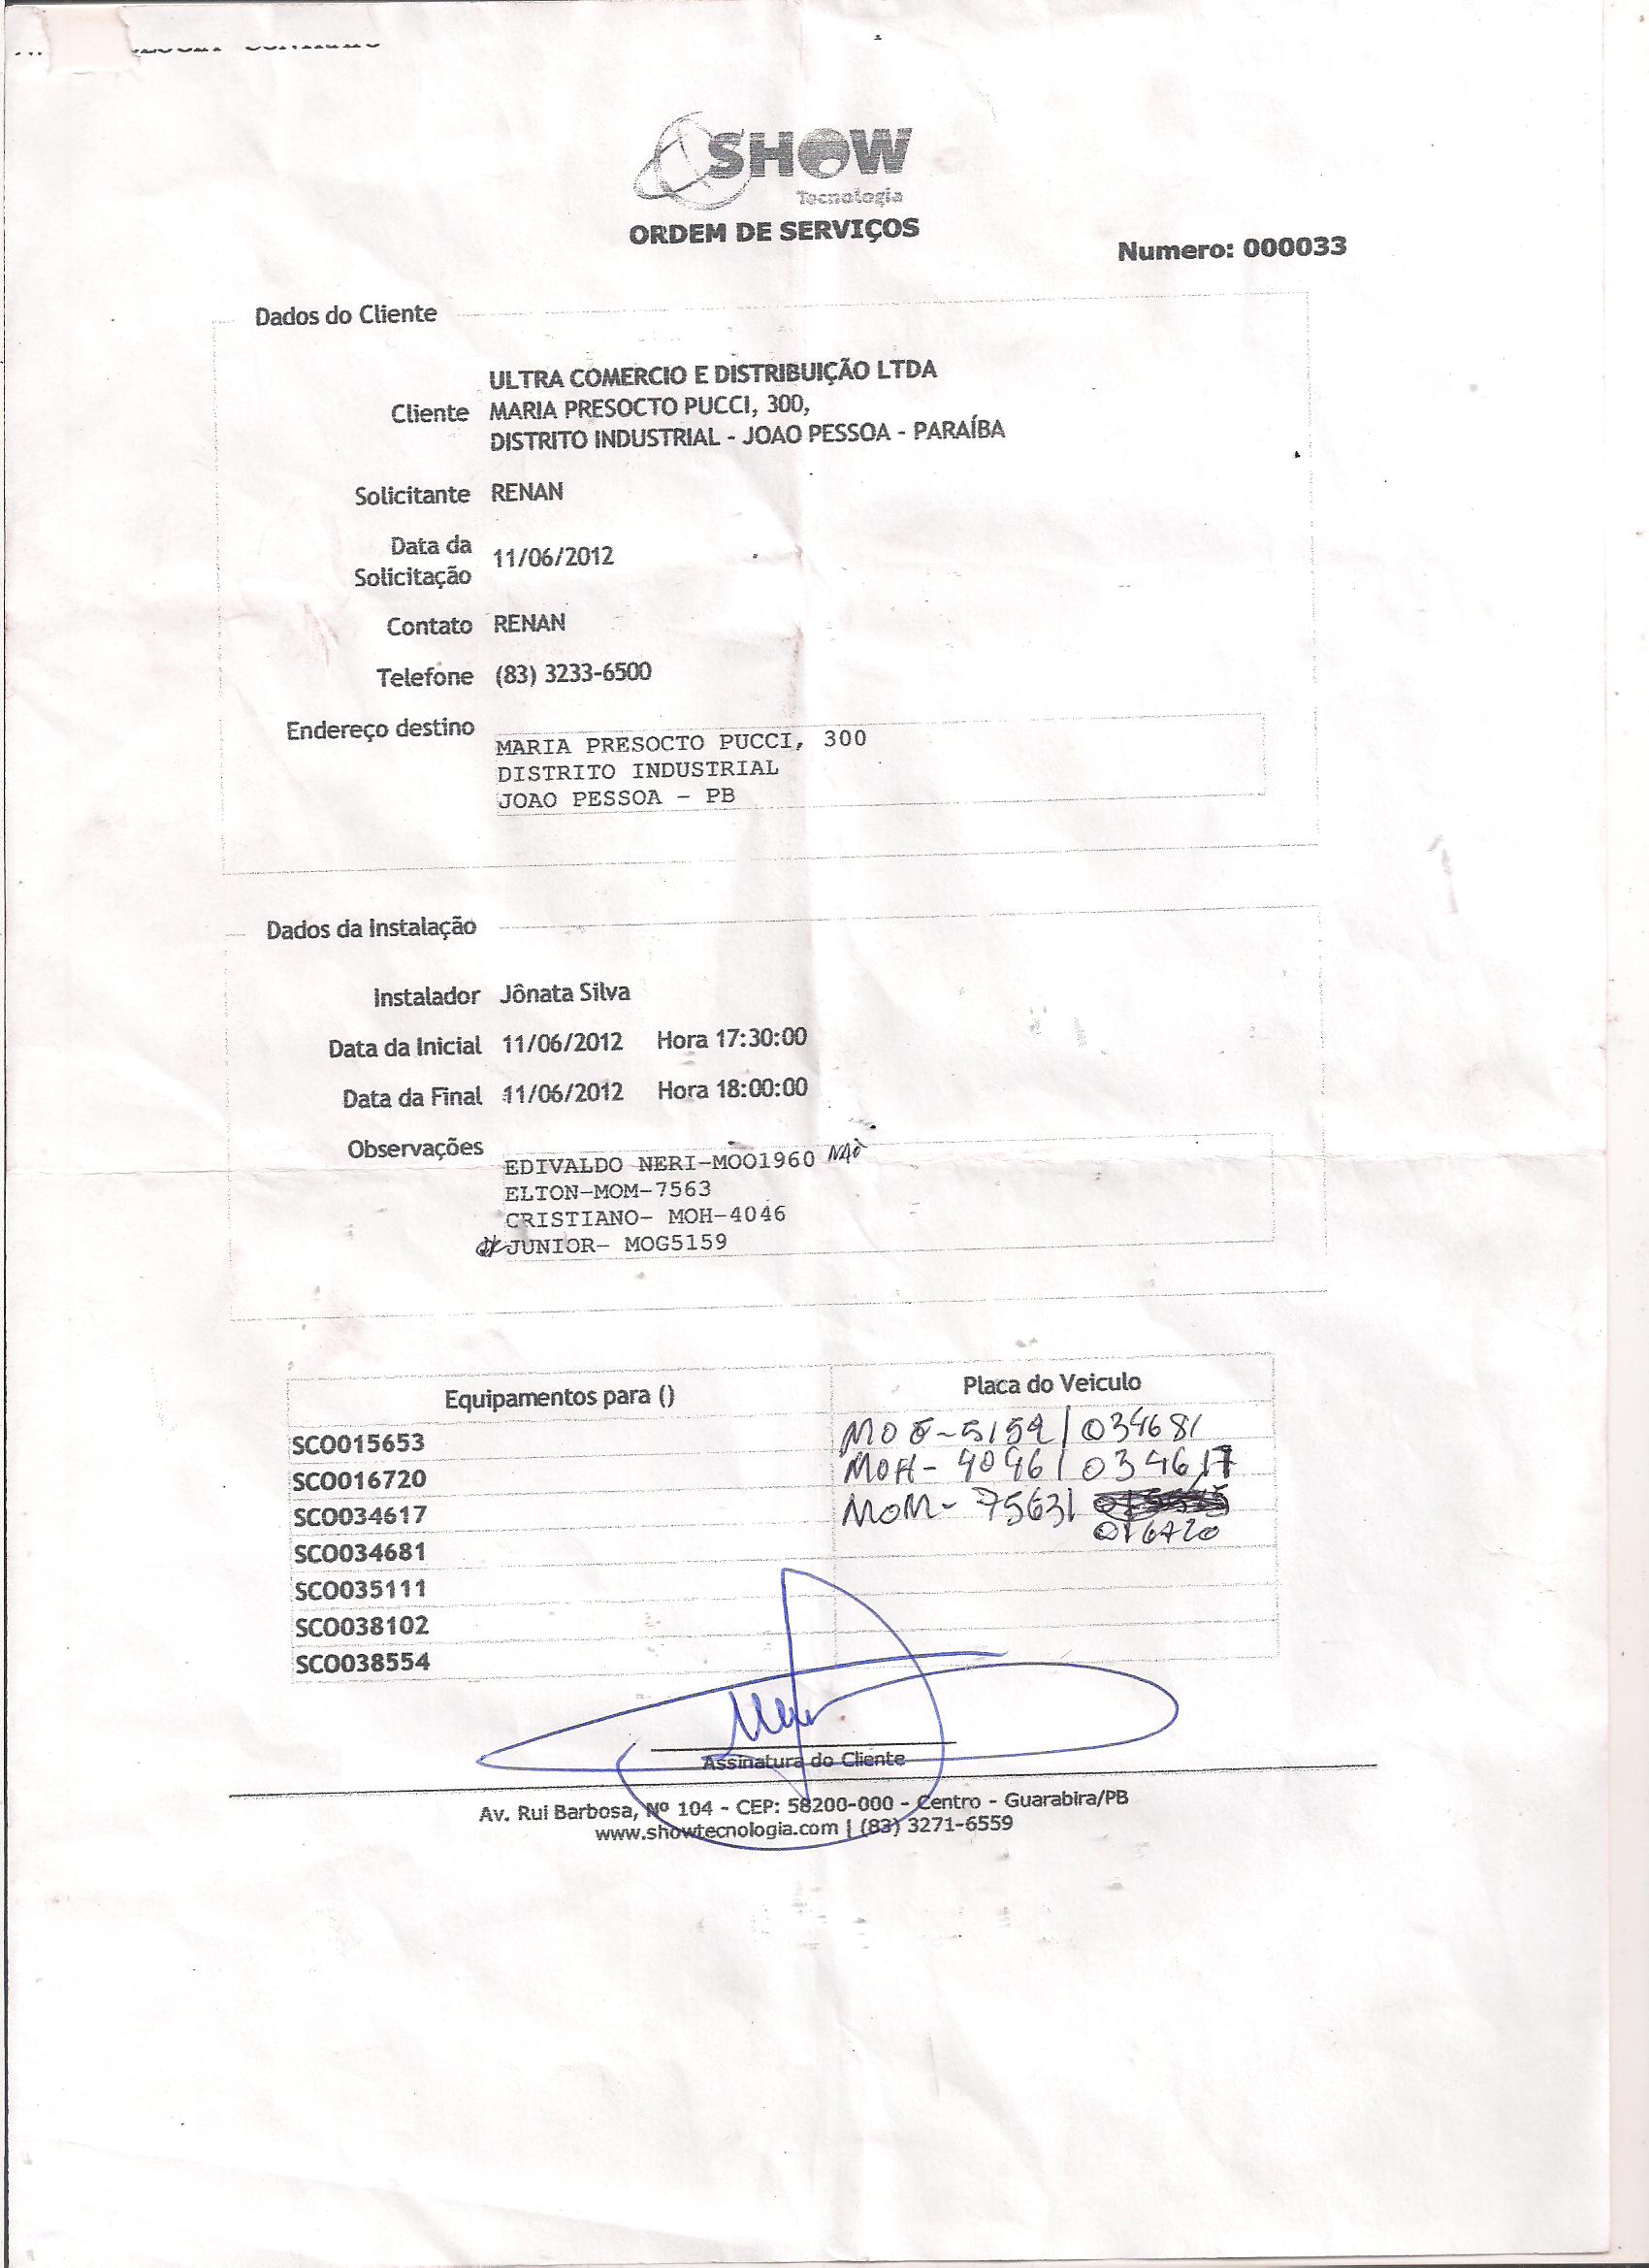 SHOW
Tecnologia
ORDEM DE SERVIÇOS
Numero: 000033
Dados do Cliente
ULTRA COMERCIO E DISTRIBUIÇÃO LTDA
Cliente MARIA PRESOCTO PUCCI, 300,
DISTRITO INDUSTRIAL - JOAO PESSOA - PARAÍBA
Solicitante RENAN
Data da
Solicitação 11/06/2012
Contato RENAN
Telefone (83) 3233-6500
Endereço destino
MARIA PRESOCTO PUCCI, 300
DISTRITO INDUSTRIAL
JOAO PESSOA - PB
Dados da Instalação
Instalador Jônata Silva
Data da Inicial 11/06/2012 Hora 17:30:00
Data da Final 11/06/2012 Hora 18:00:00
Observações
EDIVALDO NERI-MOO1960 NÃO
ELTON-MOM-7563
CRISTIANO- MOH-4046
JUNIOR- MOG5159
Equipamentos para () Placa do Veiculo
SCO015653 MOG-5159/034681
SCO016720 MOH-4046/034617
SCO034617 MOM-7563/
016720
SCO034681
SCO035111
SCO038102
SCO038554
Assinatura do Cliente
Av. Rui Barbosa, Nº 104 - CEP: 58200-000 - Centro - Guarabira/PB
www.showtecnologia.com | (83) 3271-6559